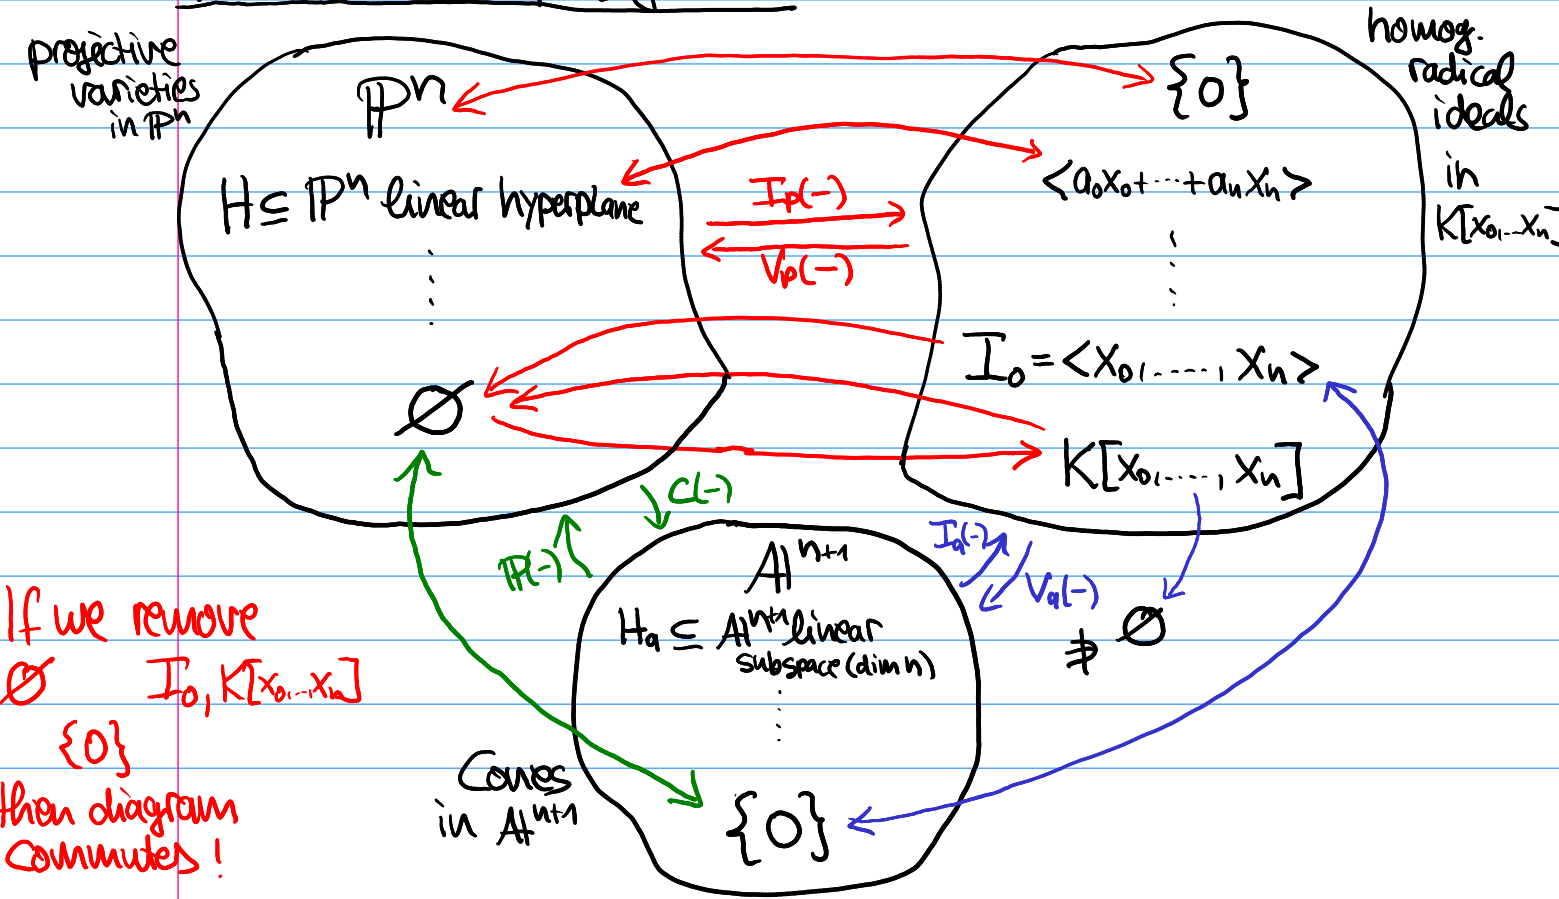 projective
varieties
in ℙⁿ
ℙⁿ
H ⊆ ℙⁿ linear hyperplane
∅
I_p(-)
V_p(-)
homog.
radical
ideals
in
K[x₀,...xₙ]
{0}
<a₀x₀+···+aₙxₙ>
I₀ = <x₀,....., xₙ>
K[x₀,....., xₙ]
C(-)
ℙ(-)
I_a(-)
V_a(-)
∌ ∅
𝔸ⁿ⁺¹
H_a ⊆ 𝔸ⁿ⁺¹ linear
subspace (dim n)
{0}
Cones
in 𝔸ⁿ⁺¹
If we remove
∅ I₀, K[x₀,...,xₙ]
{0}
then diagram
commutes!